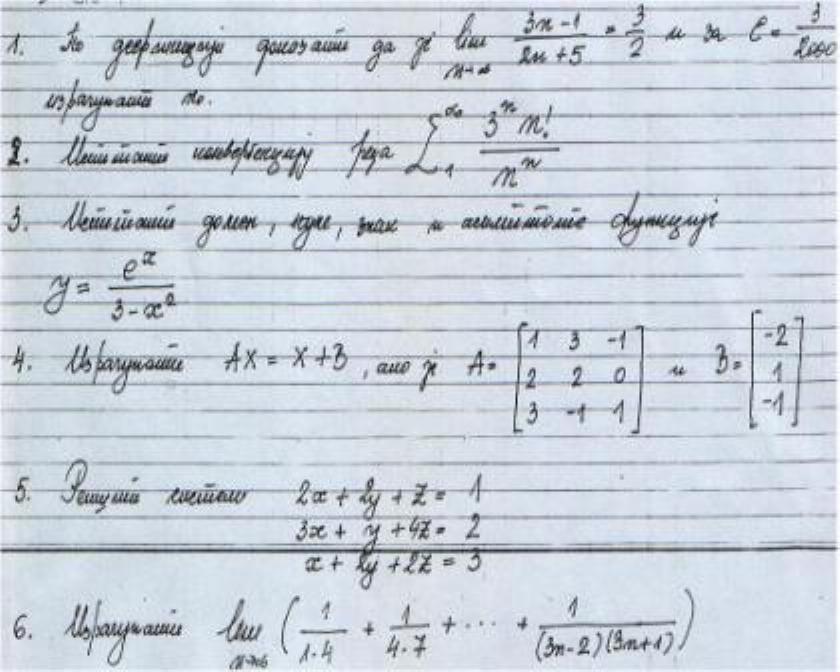 1. По дефиницији доказати да је lim n→∞ (3n-1)/(2n+5) = 3/2 и за ε = 3/2000
израчунати n₀.
2. Испитати конвергенцију реда ∑₁^∞ 3ⁿ n! / nⁿ
3. Испитати домен, нуле, знак и асимптоте функције
y = eˣ / (3-x²)
4. Израчунати AX = X+B, ако је A = [1 3 -1; 2 2 0; 3 -1 1] и B = [-2; 1; -1]
5. Решити систем 2x + 2y + z = 1
3x + y + 4z = 2
x + 2y + 2z = 3
6. Израчунати lim n→∞ (1/(1·4) + 1/(4·7) + ··· + 1/((3n-2)(3n+1)))